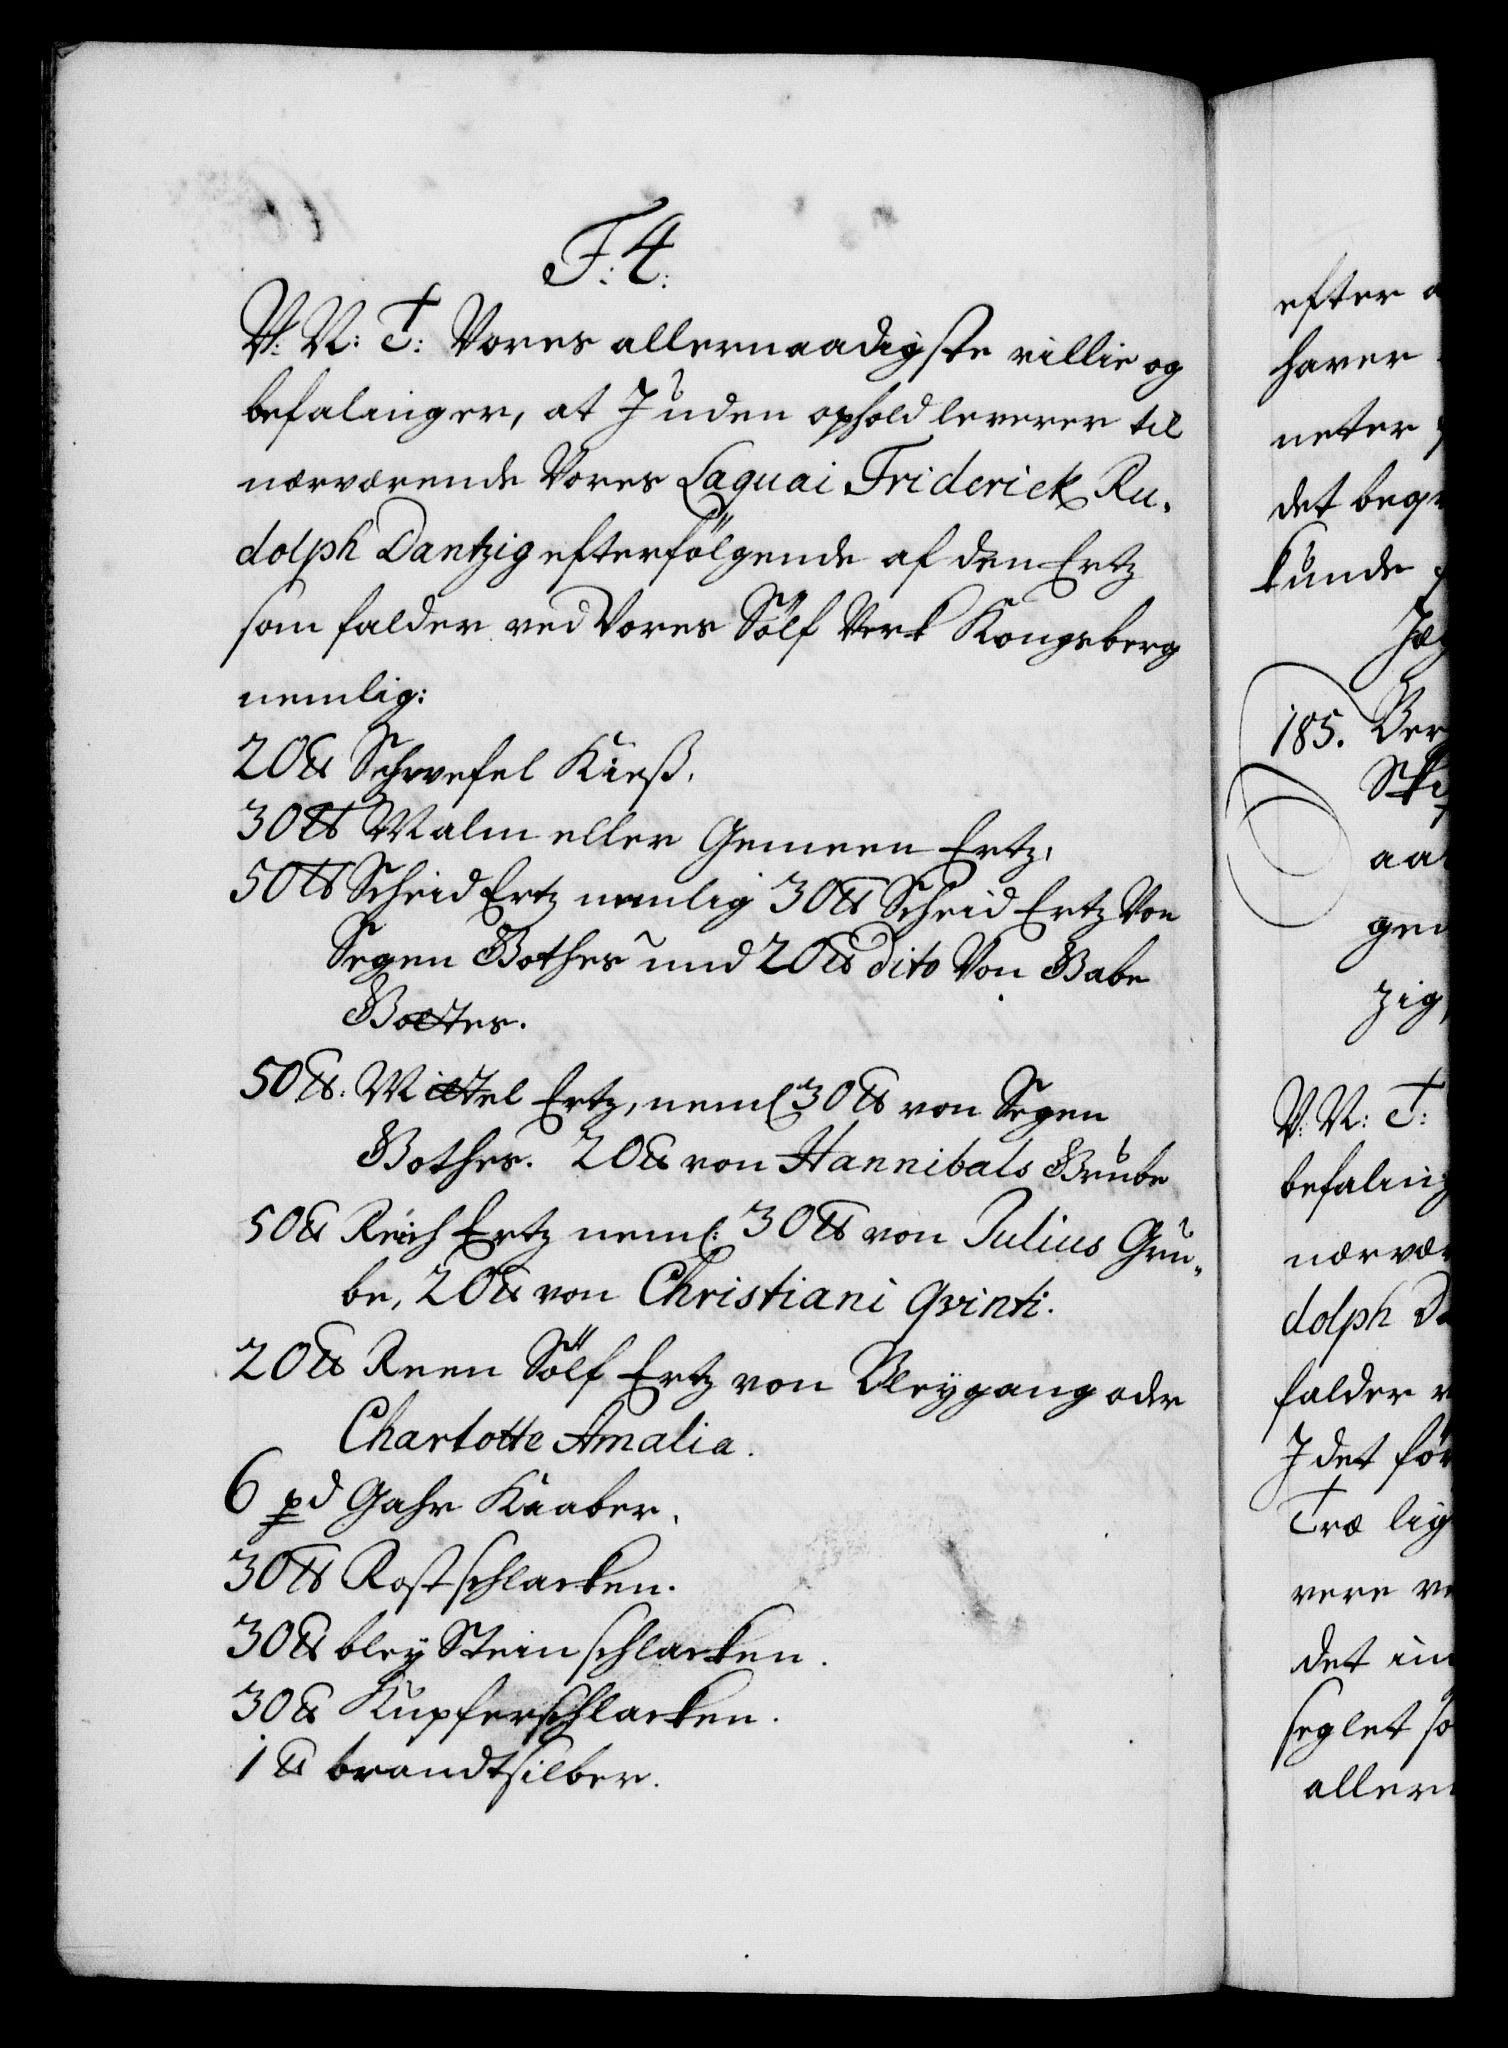 F: 4:
V: N: T: Vores allernaadigste villie og
befalinger, at I uden ophold leverer til
nærværende Vores Laquai Friderick Ru-
dolph Dantzig efterfölgende af den Ertz
som falder ved Vores Sölf Verk Kongsberg
nemlig:
20 ℔ Schwefel Kieß,
30 ℔ Malm eller Gemeen Ertz,
50 ℔ Scheid Ertz nemlig 30 ℔ Scheid Ertz Von
Segen Gottes und 20 ℔ dito Von Gabe
Gottes.
50 ℔: Mittel Ertz, neml: 30 ℔ von Segen
Gottes. 20 ℔ von Hannibals Grube
50 ℔ Reich Ertz neml: 30 ℔ von Julius Gru-
be, 20 ℔ von Christiani Qvinti.
20 ℔ Reen Sölf Ertz von Bleygang oder
Charlotte Amalia.
6 pd Gahr Kaaber.
30 ℔ Rostschlacken.
30 ℔ bley Stein schlacken.
30 ℔ Kupferschlacken.
1 ℔ brandtsilber.
efter
haver
neter
det beg
kunde
185. Ber
aa
zig,
V: N: T:
befaling
nærvær
dolph Da
falder
I det før
Træ lig
vere
det in
seglet so
aller